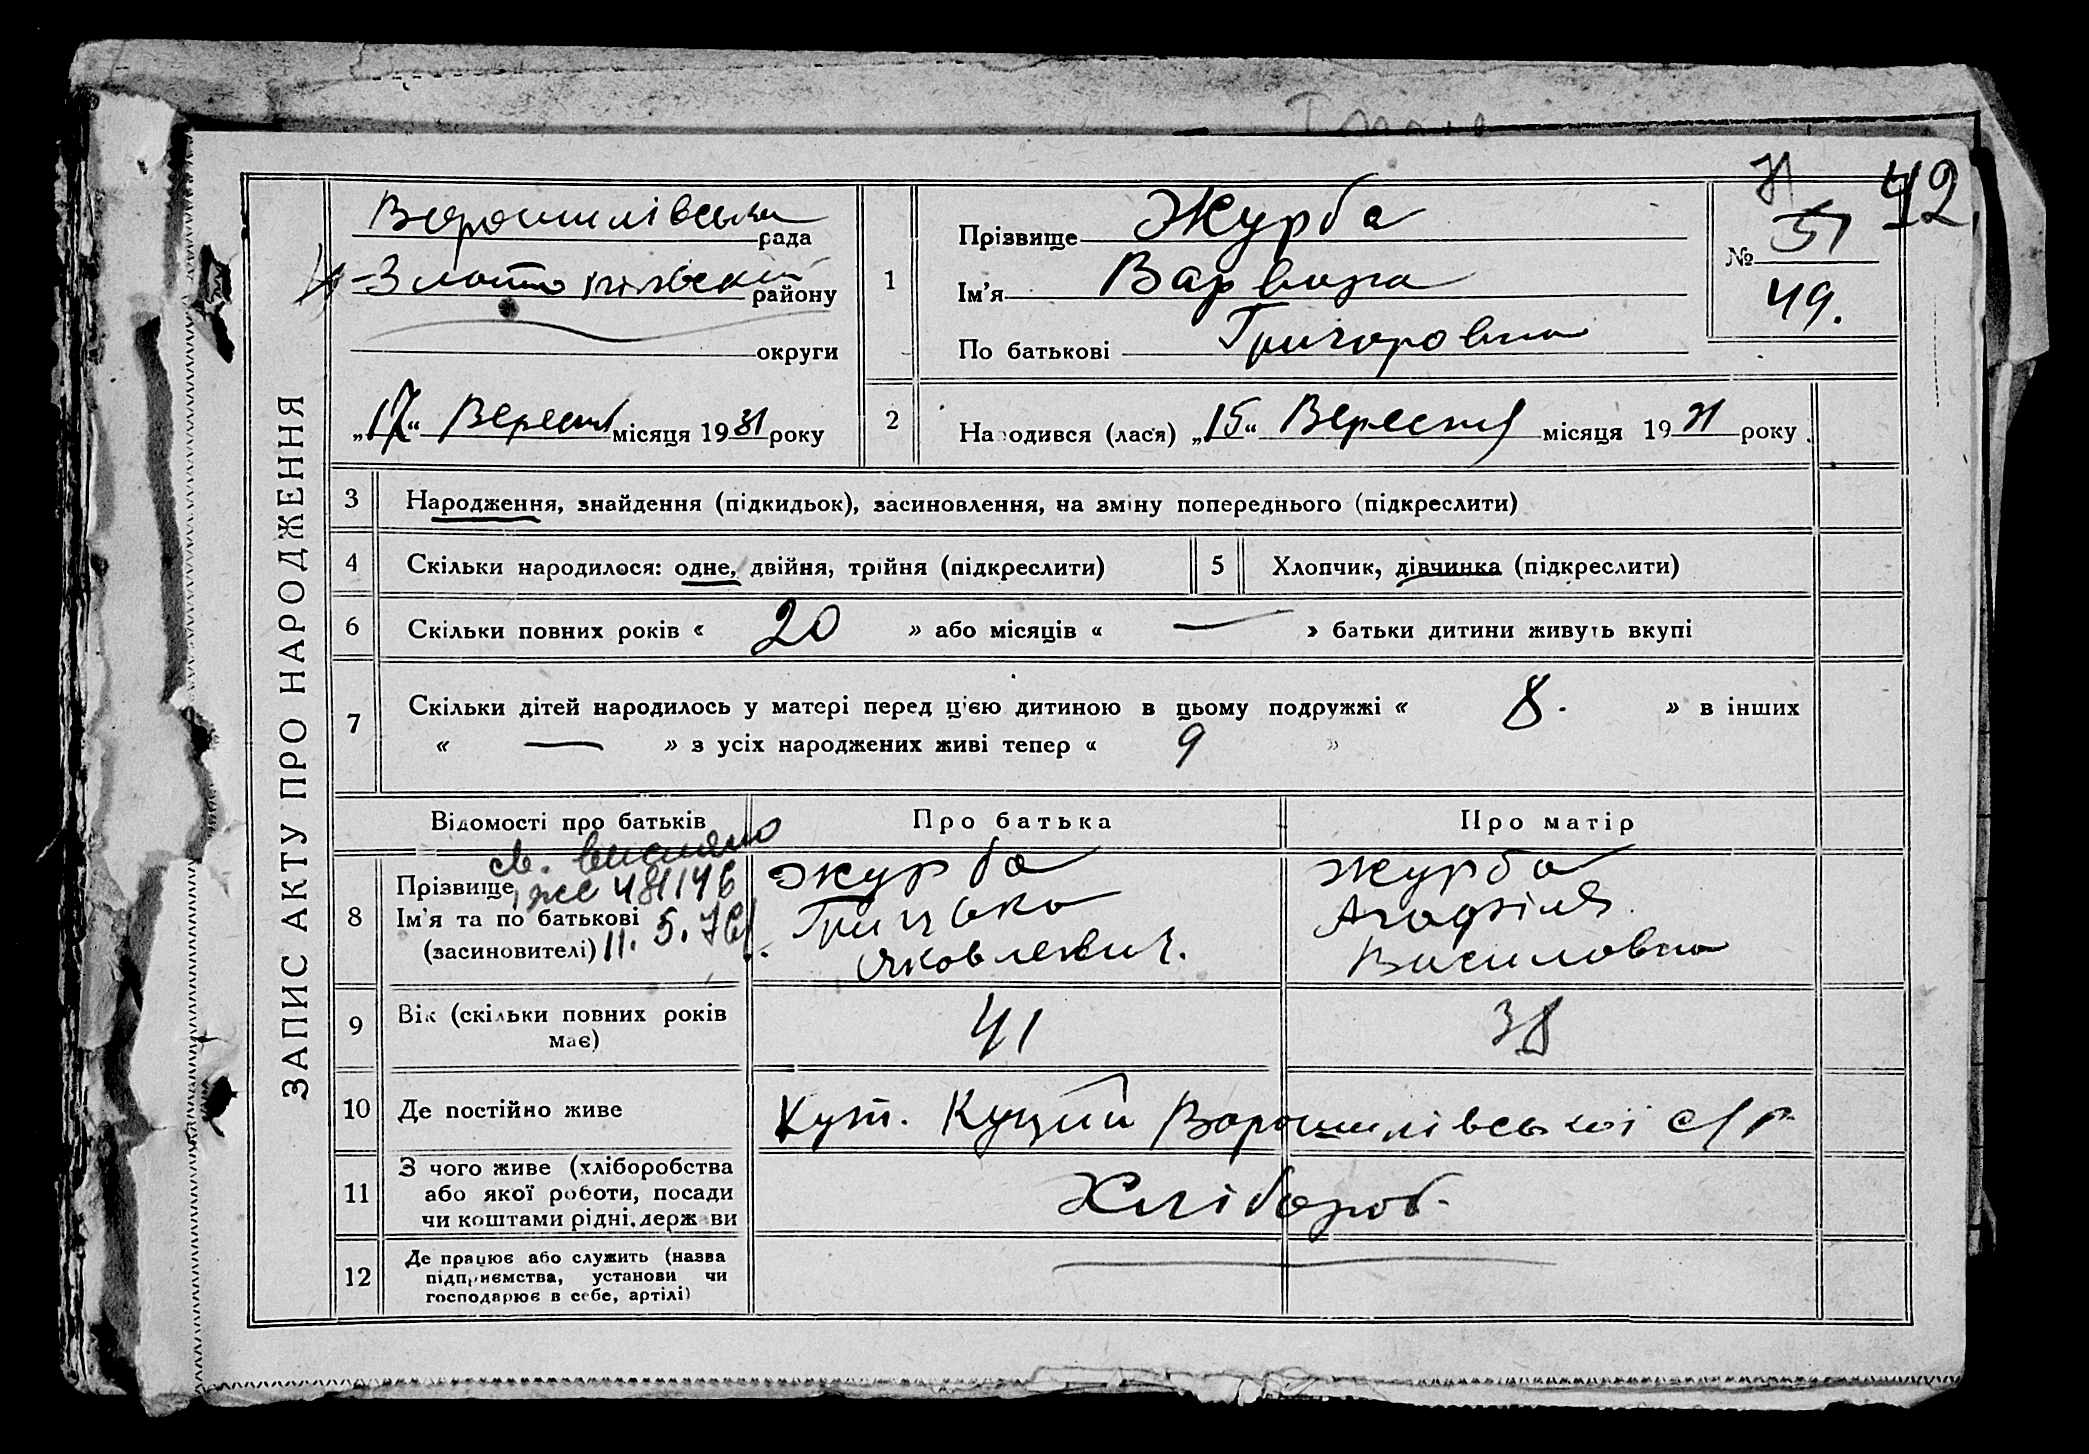 42
ЗАПИС АКТУ ПРО НАРОДЖЕННЯ
Ворошилівська рада
району
округи
„17“ Вересня місяця 1931 року
1
Прізвище Журба
Ім'я Варвара
По батькові Григоровна
№ 51
49.
2
Народився (лася) „15“ Вересня місяця 1931 року
3
Народження, знайдення (підкидьок), засиновлення, на зміну попереднього (підкреслити)
4
Скільки народилося: одне, двійня, трійня (підкреслити)
5
Хлопчик, дівчинка (підкреслити)
6
Скільки повних років « 20 » або місяців « — » батьки дитини живуть вкупі
7
Скільки дітей народилось у матері перед ц'єю дитиною в цьому подружжі « 8. » в інших
« — » з усіх народжених живі тепер « 9 »
Відомості про батьків
Про батька
Про матір
8
Прізвище,
Ім'я та по батькові
(засиновителі)
Журба
Грицько
Яковлевич.
Журба
Агафія
Василовна
9
Вік (скільки повних років
має)
41
38
10
Де постійно живе
Хут. Куций Ворошилівської с/р
11
З чого живе (хліборобства
або якої роботи, посади
чи коштами рідні, держави
Хлібороб.
12
Де працює або служить (назва
підприємства, установи чи
господарює в себе, артілі)